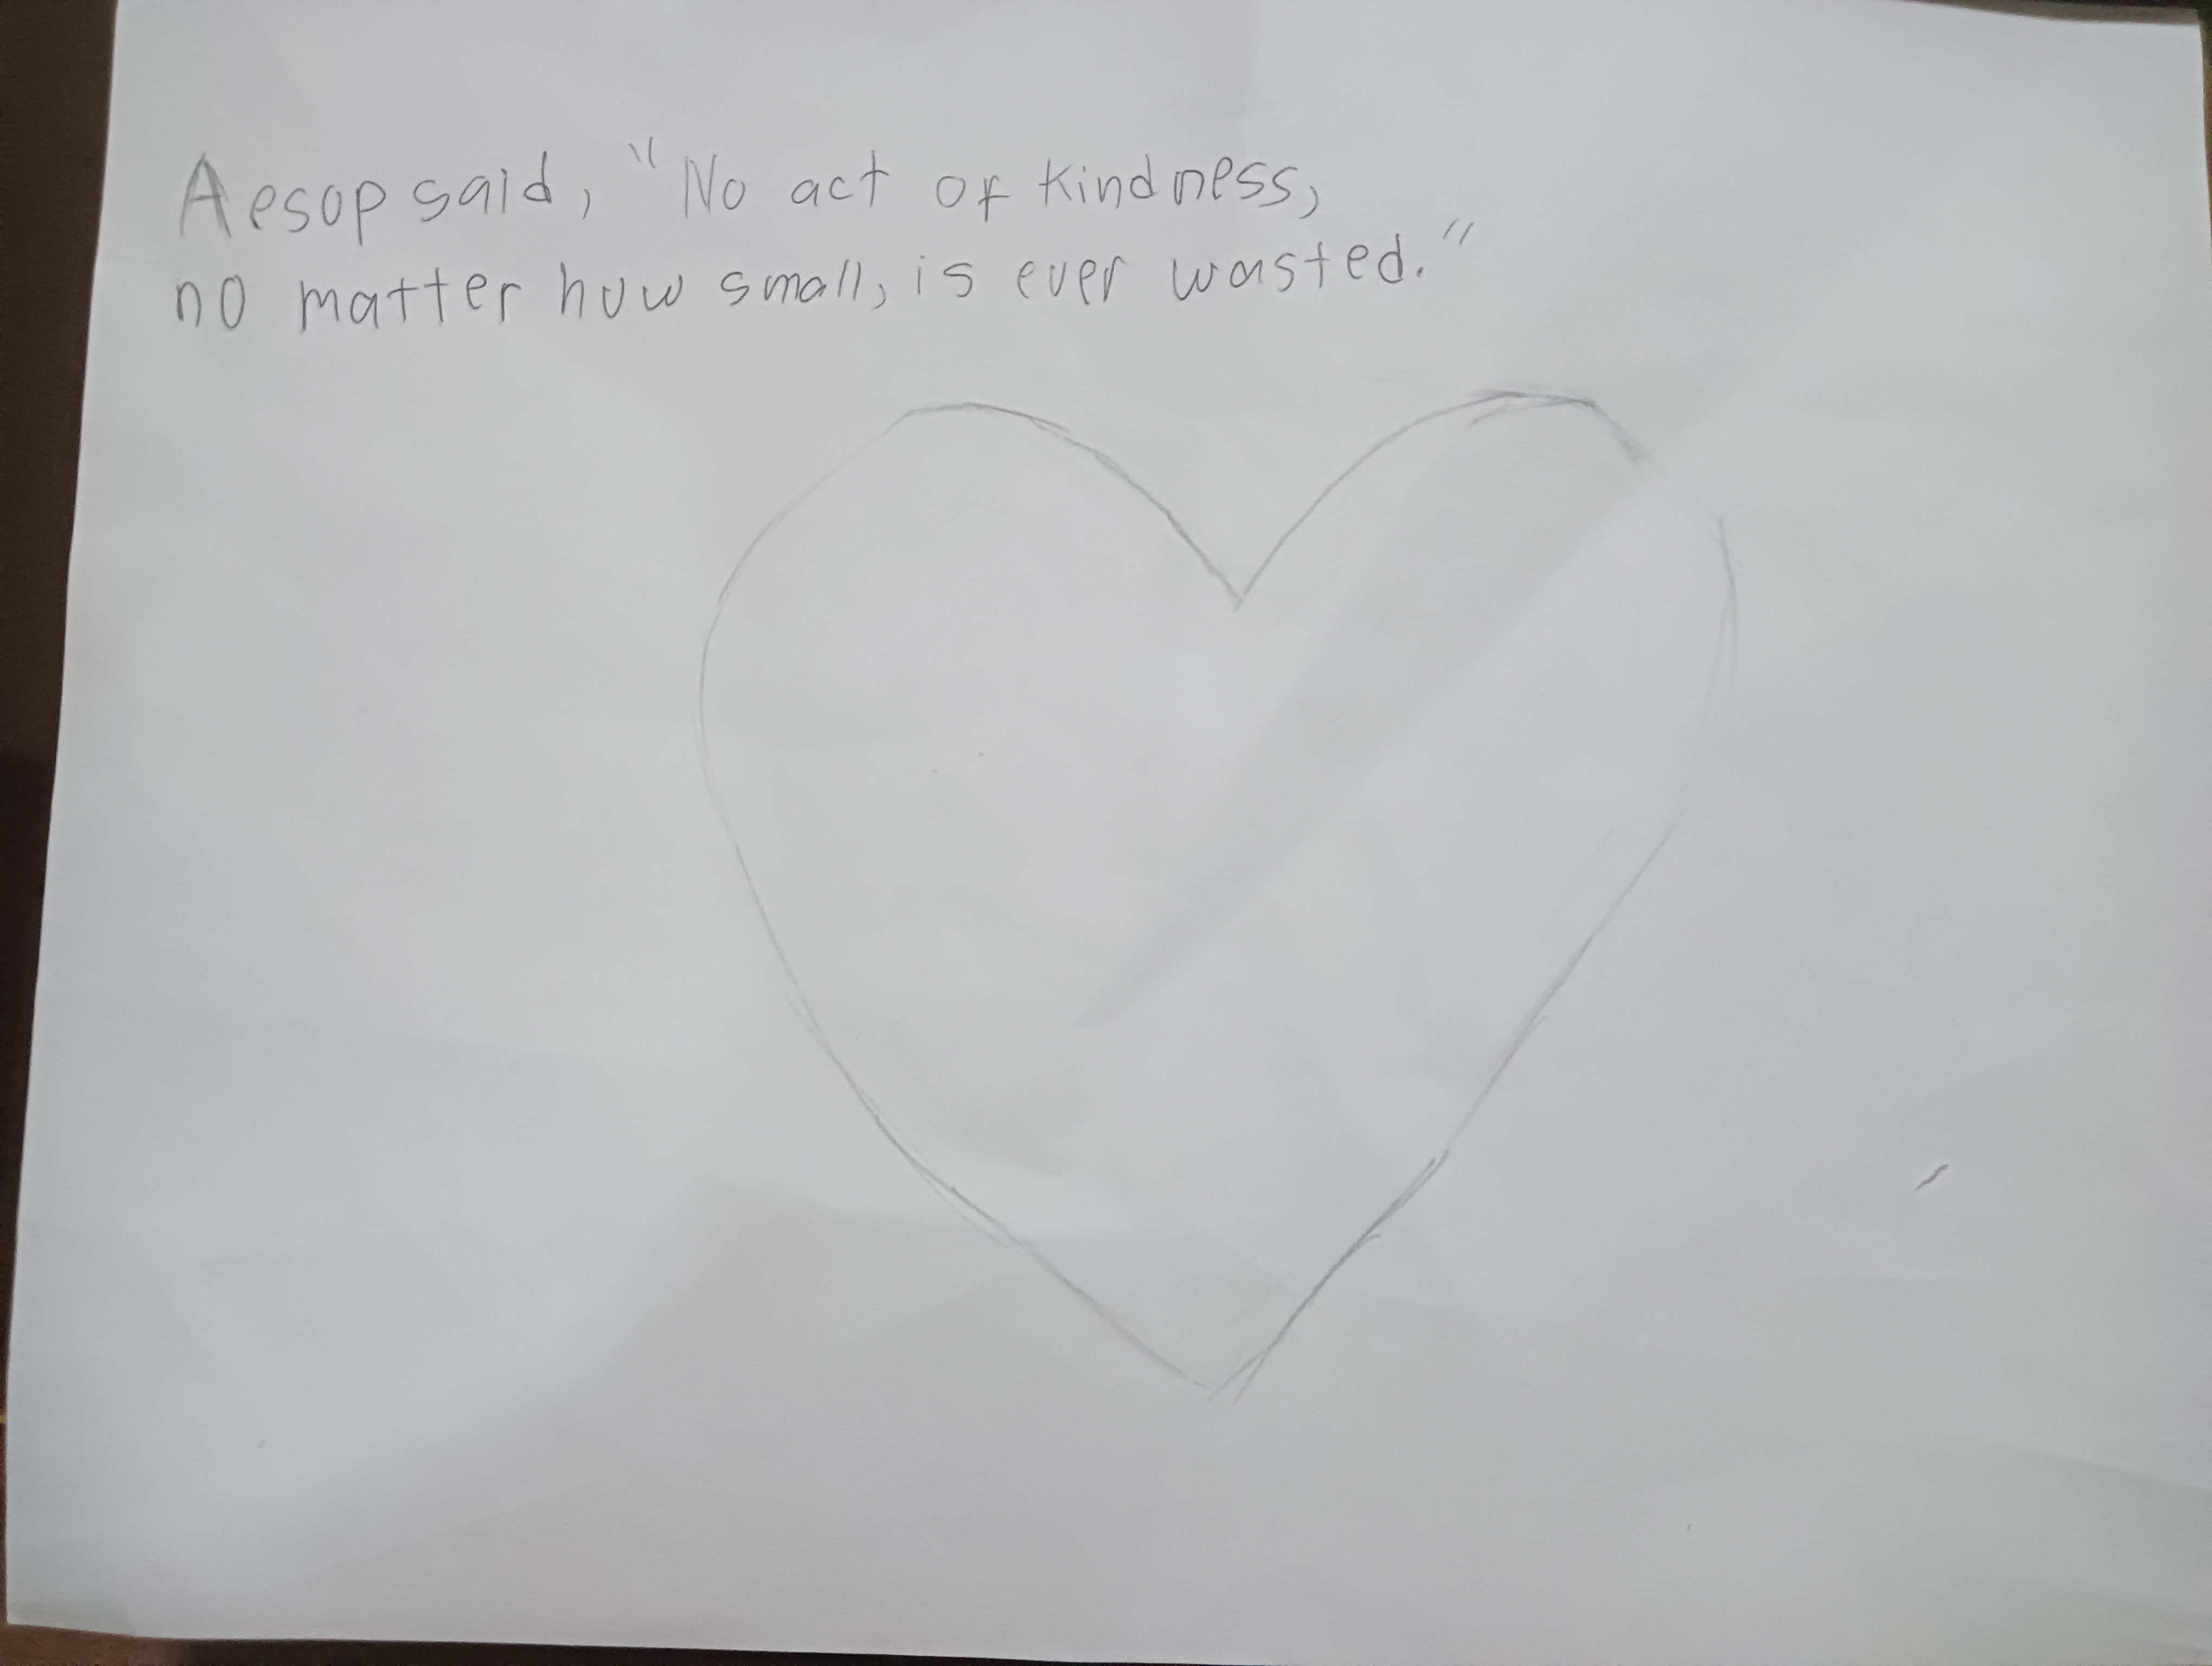 Aesop said, "No act of kindness,
no matter how small, is ever wasted."